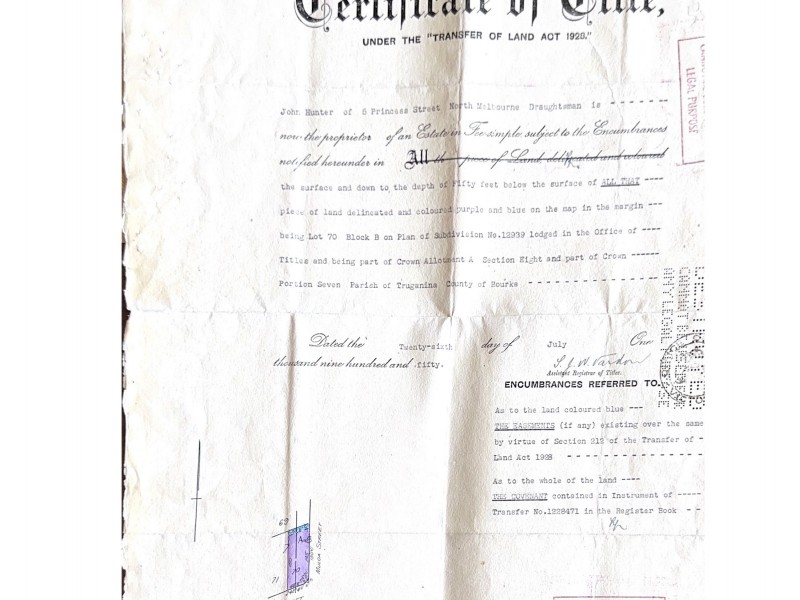 Certificate of Title,
UNDER THE "TRANSFER OF LAND ACT 1928."
LEGAL PURPOSE
John Hunter of 5 Princess Street North Melbourne Draughtsman is - - - - - - - -
now the proprietor of an Estate in Fee-simple subject to the Encumbrances
notified hereunder in All th piece of Land delineated and coloured
the surface and down to the depth of Fifty feet below the surface of ALL THAT ----
piece of land delineated and coloured purple and blue on the map in the margin ---
being Lot 70 Block B on Plan of Subdivision No.12939 lodged in the Office of ----
Titles and being part of Crown Allotment A Section Eight and part of Crown ------
Portion Seven Parish of Truganina County of Bourke - - - - - - - - - - - - - - -
Dated the Twenty-sixth day of July One
thousand nine hundred and fifty.
Assistant Registrar of Titles.
ENCUMBRANCES REFERRED TO.
As to the land coloured blue ---
THE EASEMENTS (if any) existing over the same
by virtue of Section 212 of the Transfer of -
Land Act 1928 - - - - - - - - - - - - -
As to the whole of the land ----
THE COVENANT contained in Instrument of -----
Transfer No.1228471 in the Register Book - -
69
A
B
70
71
STREET